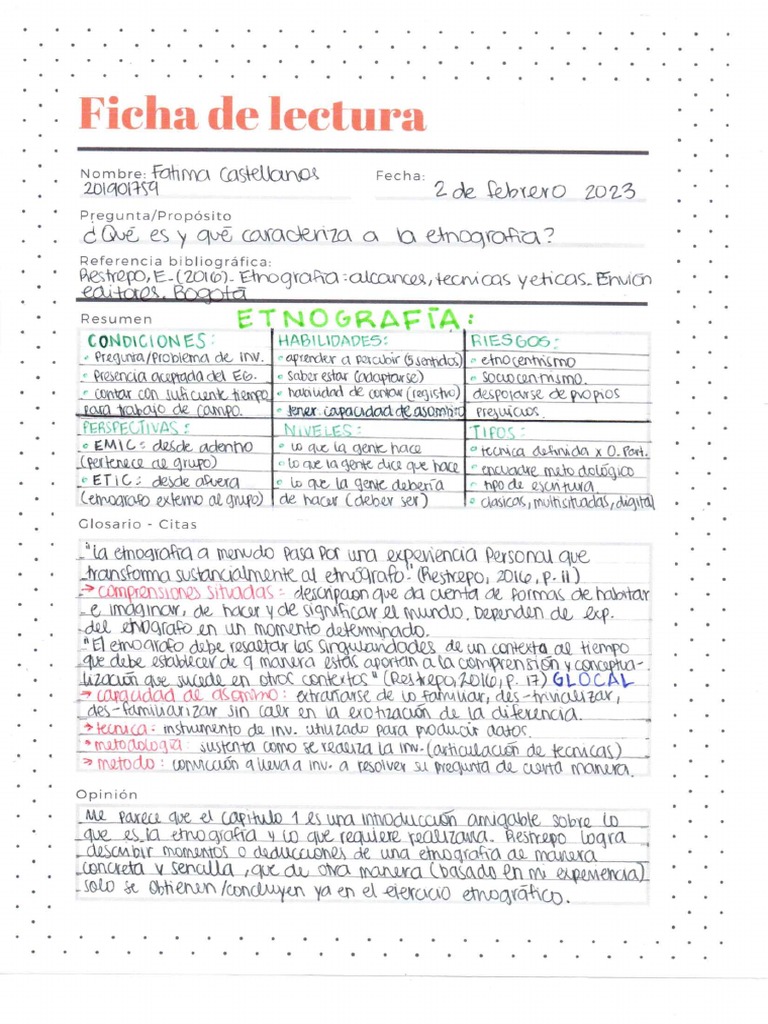 Ficha de lectura
Nombre: Fatima Castellanos
Fecha:
201901759
2 de febrero 2023
Pregunta/Propósito
¿Qué es y qué caracteriza a la etnografía?
Referencia bibliográfica:
Restrepo, E. (2016). Etnografía: alcances, tecnicas y eticas. Envión
editores. Bogotá
Resumen
ETNOGRAFÍA:
CONDICIONES:
• Pregunta/problema de inv.
• Presencia aceptada del EG.
• contar con suficiente tiempo
para trabajo de campo.
HABILIDADES:
• aprender a percibir (5 sentidos)
• saber estar (adaptarse)
• habilidad de contar (registro)
• tener capacidad de asombro
RIESGOS:
• etnocentrismo
• sociocentrismo.
despojarse de propios
prejuicios.
PERSPECTIVAS:
• EMIC: desde adentro
(pertenece al grupo)
• ETIC: desde afuera
(etnografo externo al grupo)
NIVELES:
• lo que la gente hace
• lo que la gente dice que hace
• lo que la gente debería
de hacer (deber ser)
TIPOS:
• tecnica definida x O. Part.
• encuadre metodológico
• tipo de escritura
• clasicas, multisituadas, digital
Glosario - Citas
"la etnografía a menudo pasa por una experiencia personal que
transforma sustancialmente al etnógrafo" (Restrepo, 2016, p. 11)
→ comprensiones situadas: descripcion que da cuenta de formas de habitar
e imaginar, de hacer y de significar el mundo. Dependen de exp.
del etnografo en un momento determinado.
"El etnografo debe resaltar las singularidades de un contexto al tiempo
que debe establecer de q manera estas aportan a la comprensión y conceptua-
lización que sucede en otros contextos" (Restrepo, 2016, p. 17) GLOCAL
→ capacidad de asombro: extrañarse de lo familiar, des-trivializar,
des-familiarizar sin caer en la exotización de la diferencia.
→ tecnica: instrumento de inv. utilizado para producir datos.
→ metodología: sustenta como se realiza la inv. (articulación de tecnicas)
→ metodo: convicción q lleva a inv. a resolver su pregunta de cierta manera.
Opinión
Me parece que el capitulo 1 es una introducción amigable sobre lo
que es la etnografía y lo que requiere realizarla. Restrepo logra
describir momentos o deducciones de una etnografía de manera
concreta y sencilla, que de otra manera (basado en mi experiencia)
solo se obtienen/concluyen ya en el ejercicio etnográfico.